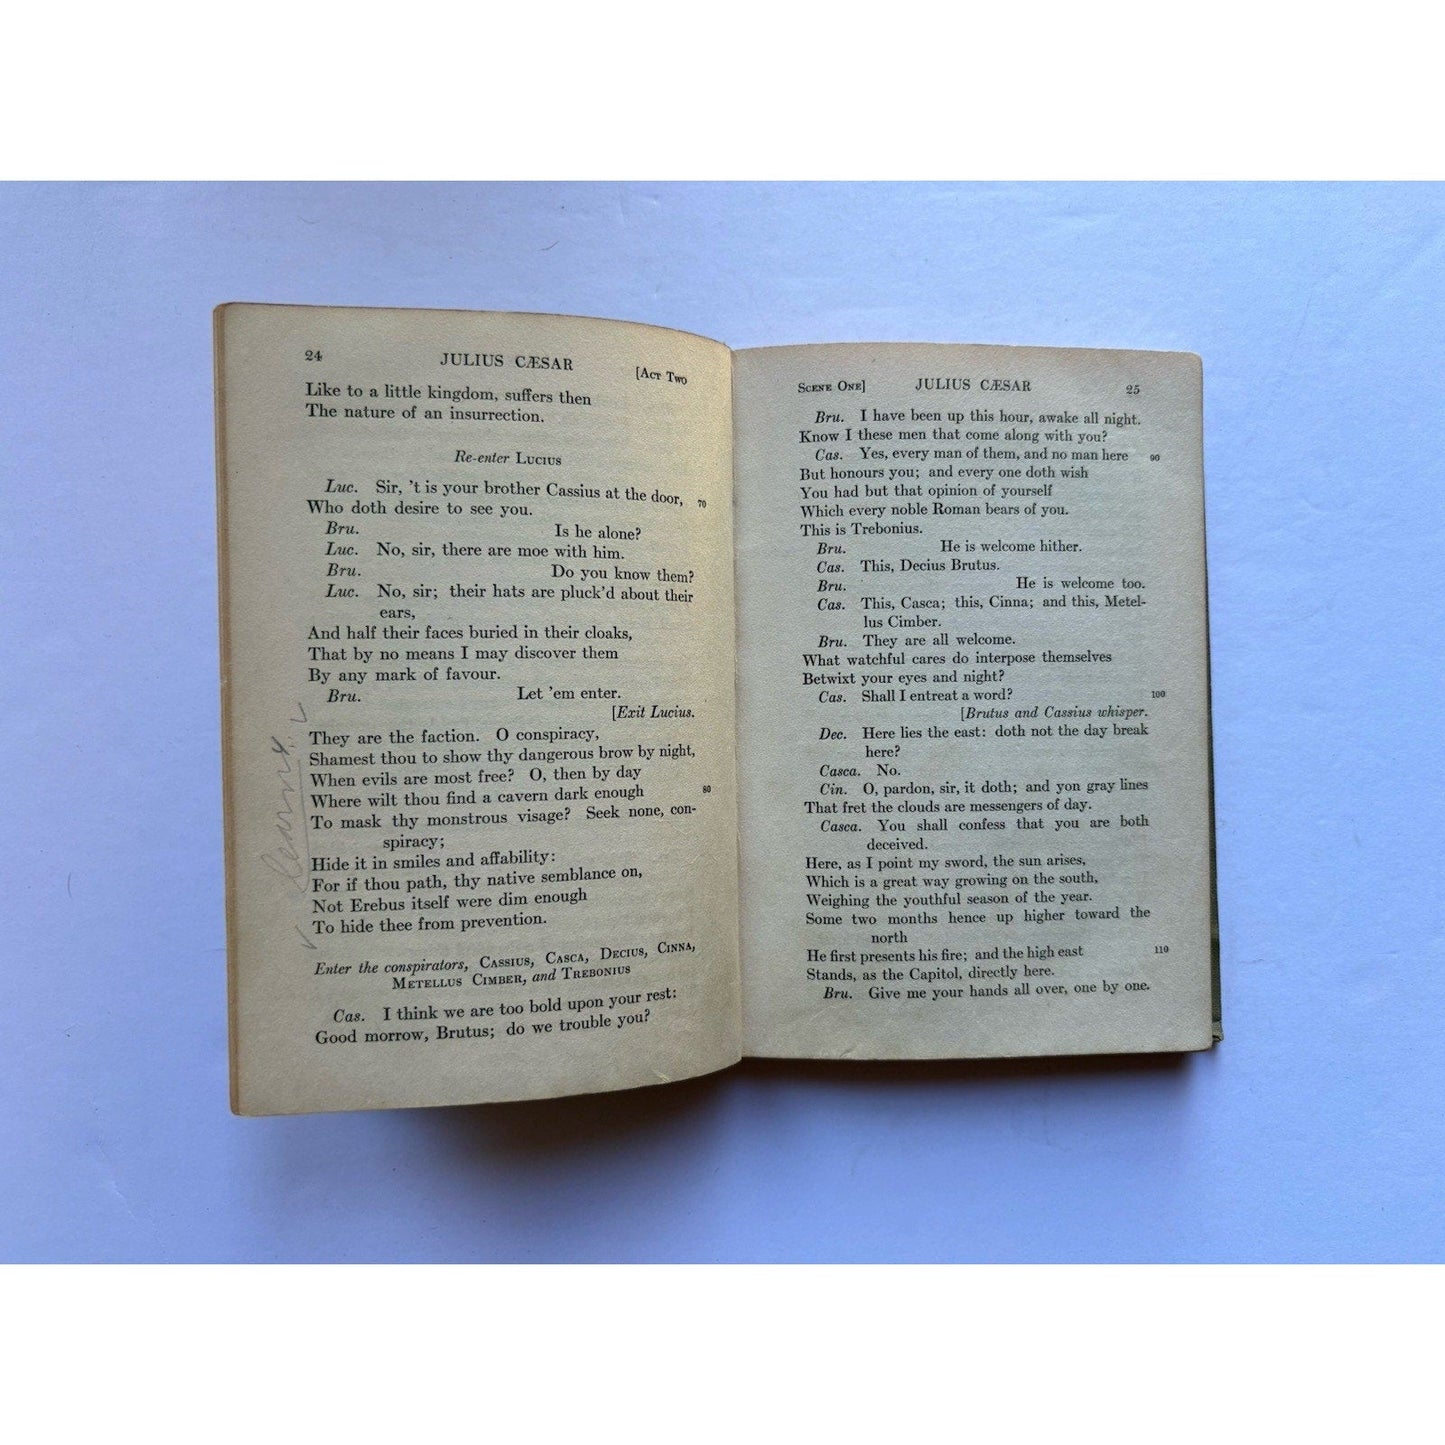 24 JULIUS CÆSAR [ACT TWO
Like to a little kingdom, suffers then
The nature of an insurrection.
Re-enter LUCIUS
Luc. Sir, 't is your brother Cassius at the door, 70
Who doth desire to see you.
Bru. Is he alone?
Luc. No, sir, there are moe with him.
Bru. Do you know them?
Luc. No, sir; their hats are pluck'd about their
ears,
And half their faces buried in their cloaks,
That by no means I may discover them
By any mark of favour.
Bru. Let 'em enter.
[Exit Lucius.
They are the faction. O conspiracy,
Shamest thou to show thy dangerous brow by night,
When evils are most free? O, then by day
Where wilt thou find a cavern dark enough 80
To mask thy monstrous visage? Seek none, con-
spiracy;
Hide it in smiles and affability:
For if thou path, thy native semblance on,
Not Erebus itself were dim enough
To hide thee from prevention.
Enter the conspirators, CASSIUS, CASCA, DECIUS, CINNA,
METELLUS CIMBER, and TREBONIUS
Cas. I think we are too bold upon your rest:
Good morrow, Brutus; do we trouble you?
SCENE ONE] JULIUS CÆSAR 25
Bru. I have been up this hour, awake all night.
Know I these men that come along with you?
Cas. Yes, every man of them, and no man here 90
But honours you; and every one doth wish
You had but that opinion of yourself
Which every noble Roman bears of you.
This is Trebonius.
Bru. He is welcome hither.
Cas. This, Decius Brutus.
Bru. He is welcome too.
Cas. This, Casca; this, Cinna; and this, Metel-
lus Cimber.
Bru. They are all welcome.
What watchful cares do interpose themselves
Betwixt your eyes and night?
Cas. Shall I entreat a word? 100
[Brutus and Cassius whisper.
Dec. Here lies the east: doth not the day break
here?
Casca. No.
Cin. O, pardon, sir, it doth; and yon gray lines
That fret the clouds are messengers of day.
Casca. You shall confess that you are both
deceived.
Here, as I point my sword, the sun arises,
Which is a great way growing on the south,
Weighing the youthful season of the year.
Some two months hence up higher toward the
north
He first presents his fire; and the high east 110
Stands, as the Capitol, directly here.
Bru. Give me your hands all over, one by one.